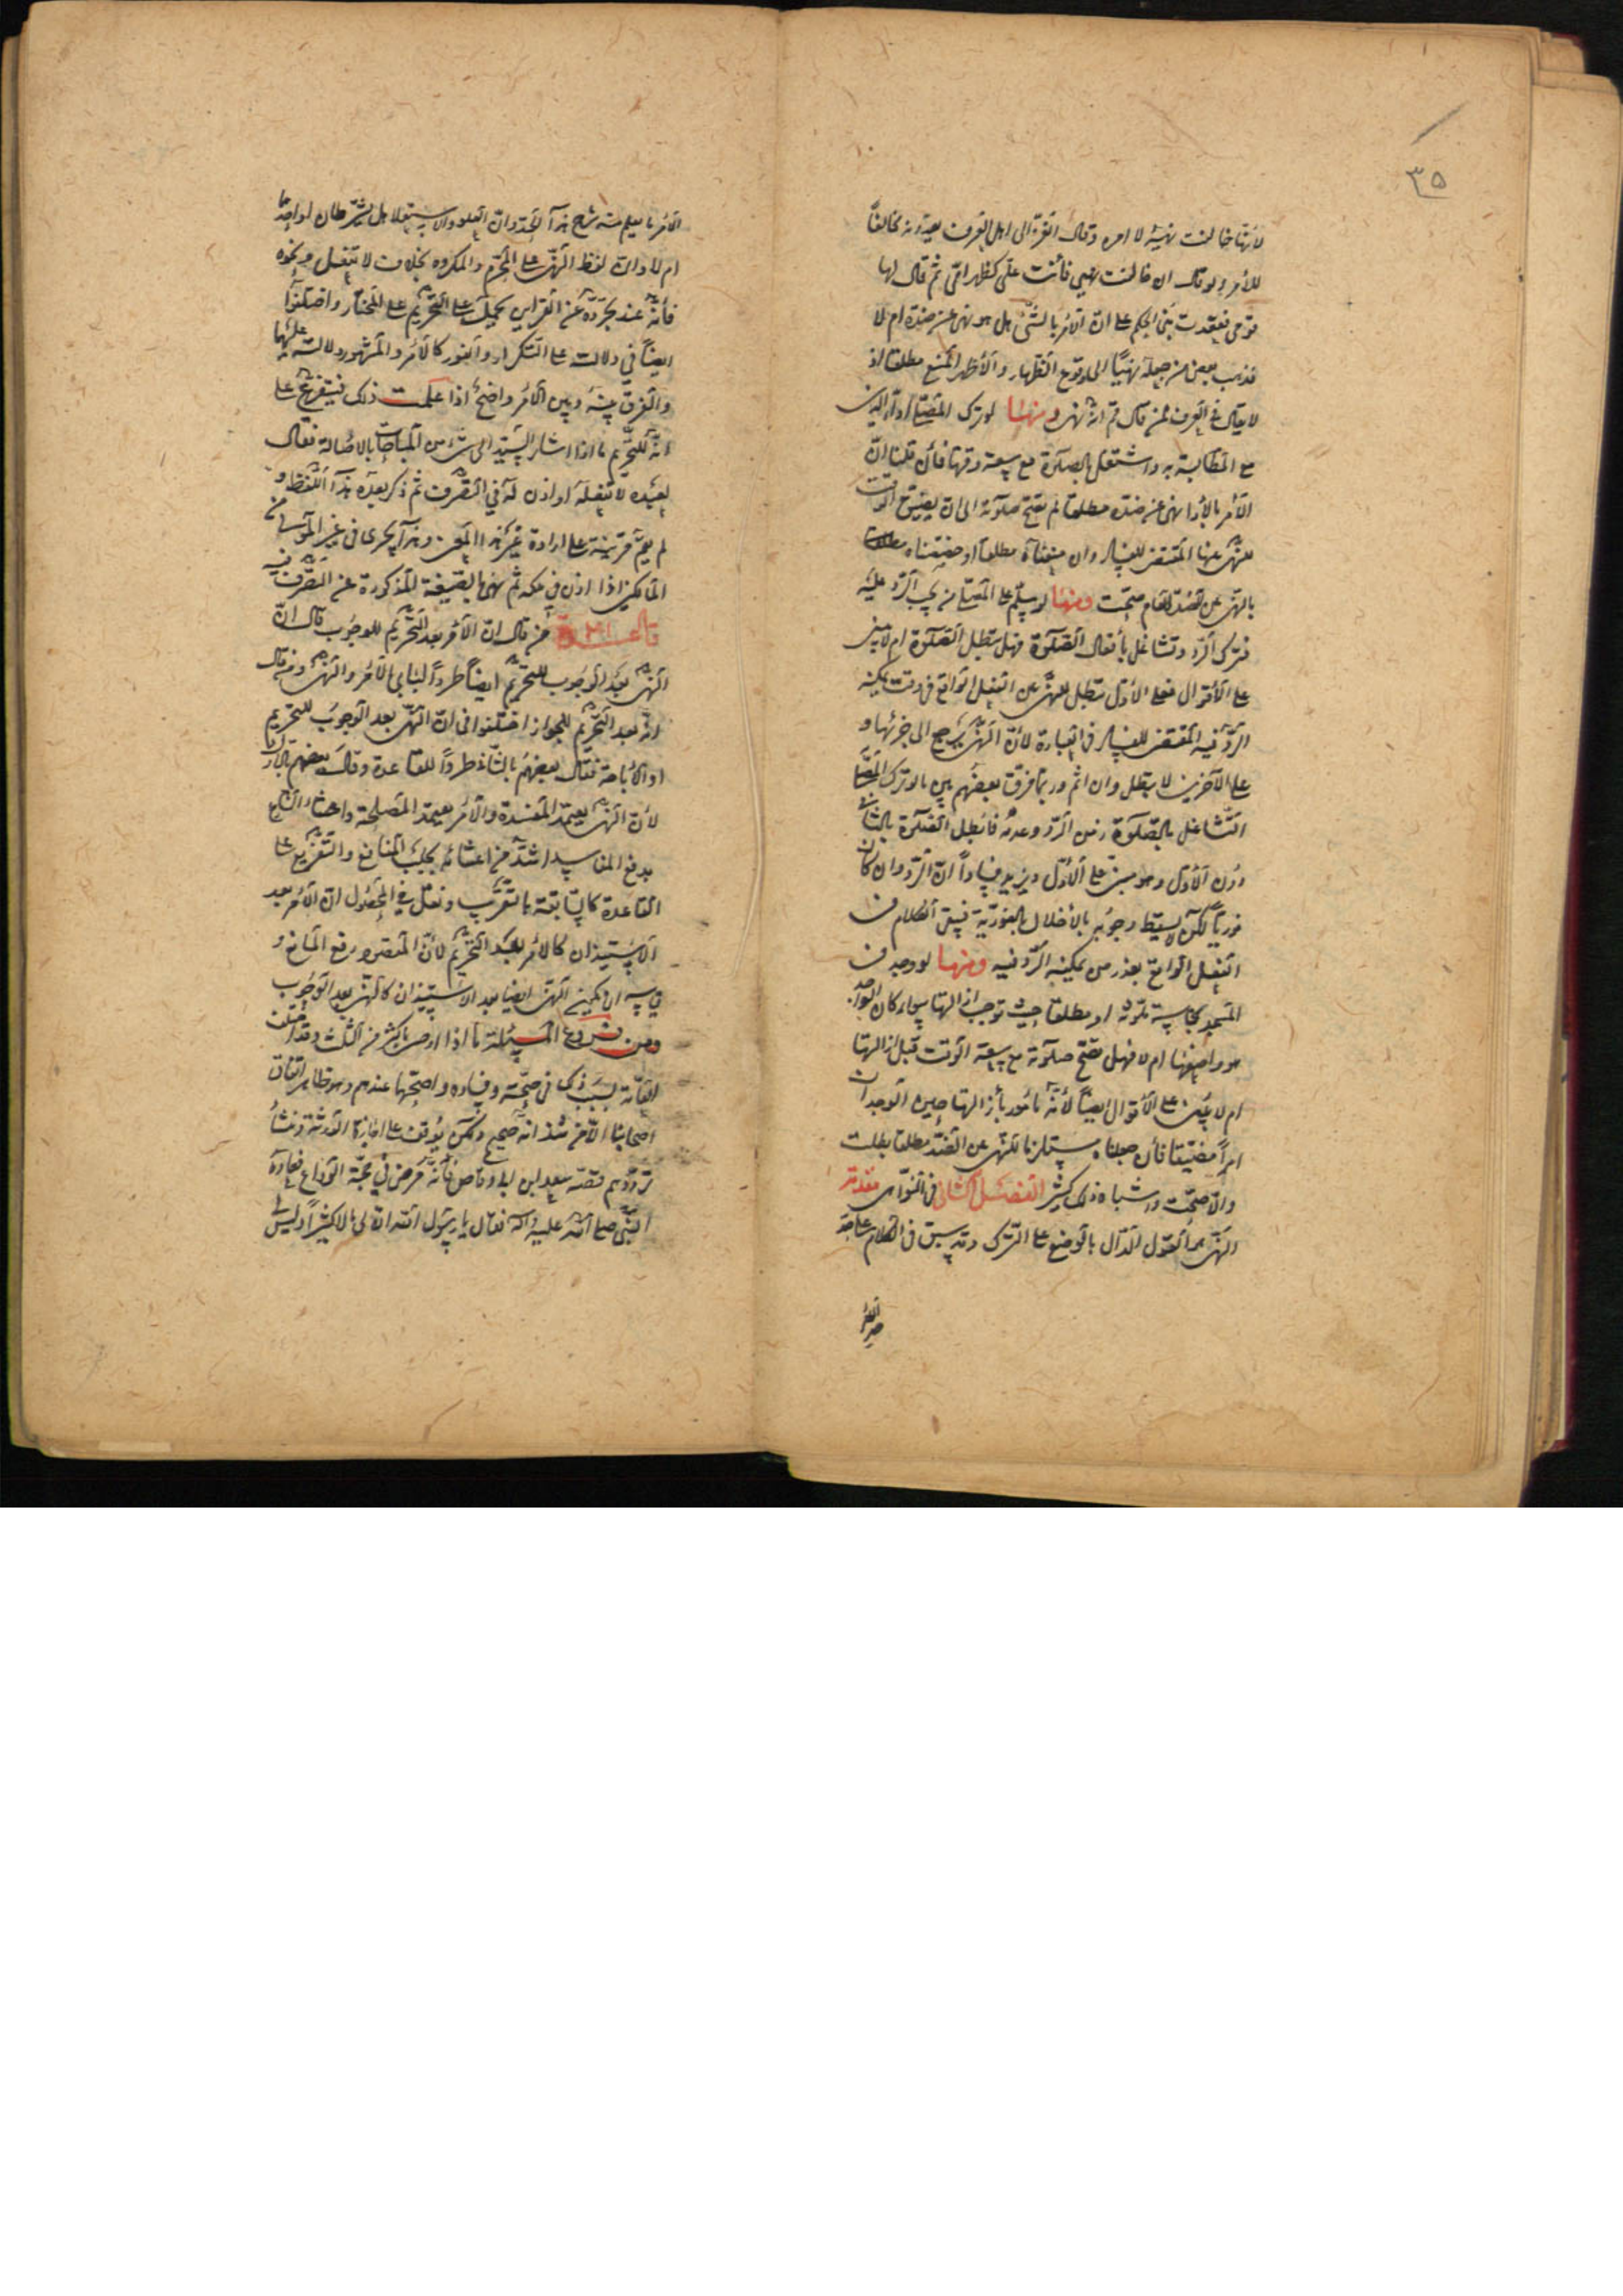 ٣٥
لأنها خالفت نهيه لا امره وقال الغزالى اهل العرف يعدونه مخالفا
للأمر ولو قال ان خالفت نهيي فأنت على كظهر امى ثم قال لها
قومى فقعدت بنى الحكم على ان الأمر بالشئ هل هو نهى عن ضده ام لا
فذهب بعض من جعله نهيا الى وقوع الظهار والأظهر المنع مطلقا اذ
لا يقال فى العرف لمن قال قم انه نهى ومنها لو ترك المصلى اداء الدين
مع المطالبة به واشتغل بالصلوة مع سعة وقتها فأن قلنا ان
الأمر بالأداء نهى عن ضده مطلقا لم تصح صلوته الى ان يضيق الوقت
للنهى عنها المقتضى للفساد وان منعناه مطلقا او خصصناه مطلقا
بالنهى عن الضد العام صحت ومنها لو سلم على المصلى من يجب الرد عليه
فترك الرد وتشاغل بأفعال الصلوة فهل تبطل الصلوة ام لا يبنى
على الأقوال فعلى الأول تبطل للنهى عن الفعل الواقع فى وقت يمكنه
الرد فيه المقتضى للفساد فى العبادة لأن النهى يرجع الى جزئها و
على الآخرين لا يبطل وان اثم وربما فرق بعضهم بين ما لو ترك المصلى
التشاغل بالصلوة زمن الرد وعدمه فابطل الصلوة بالثانى
دون الأول وهو مبنى على الأول ويزيد فسادا ان الرد وان كان
فوريا لكن لا يسقط وجوبه بالأخلال بالفورية فيبقى الكلام فى
الفعل الواقع بعد زمن يمكنه الرد فيه ومنها لو وجد فى
المسجد نجاسة ملوثة او مطلقا حيث نوجب ازالتها سواء كان الواجد
هو واضعها ام لا فهل تصح صلوته مع سعة الوقت قبل ازالتها
ام لا يبنى على الأقوال ايضا لأنه مأمور بأزالتها حين الوجدان
امرا مضيقا فأن جعلناه مستلزما للنهى عن الضد مطلقا بطلت
والا صحت واشباه ذلك كثير الفصل الثانى فى النواهى مقدمة
النهى هو القول الدال بالوضع على الترك وقد سبق فى الكلام على حد
الأمر ما يعلم منه شرح هذا الحد وان العلو والاستعلا هل يشترطان او احدهما
ام لا وان لفظ النهى على المحرم والمكروه بخلاف لا تفعل ونحوه
فأنه عند تجرده عن القراين يحمل على التحريم على المختار واختلفوا
ايضا فى دلالته على التكرار والفور كالأمر والمشهور دلالته عليهما
والفرق بينه وبين الأمر واضح اذا علمت ذلك فيتفرع على
انه للتحريم ما اذا اشار السيد الى شئ من المباحات بالاصالة فقال
لعبده لا تفعله او اذن له فى التصرف ثم ذكر بعده هذا اللفظ و
لم يقم قرينة على ارادة غير هذا المعنى وهذا يجرى فى غير المولى من
المالكين اذا اذن فى ملكه ثم نهى بالصيغة المذكورة عن التصرف فيه
قاعدة من قال ان الأمر بعد التحريم للوجوب قال ان
النهى بعد الوجوب للتحريم ايضا طردا لبابى الأمر والنهى ومن قال
انه بعد التحريم للجواز اختلفوا فى ان النهى بعد الوجوب للتحريم
او الأباحة فقال بعضهم بالثانى طردا للقاعدة وقال بعضهم بالاول
لأن النهى يعتمد المفسدة والأمر يعتمد المصلحة واعتناء الشارع
بدفع المفاسد اشد من اعتنائه بجلب المنافع والتفريع على
القاعدة كالسابقة بالتقريب ونقل فى المحصول ان الأمر بعد
الاستيذان كالأمر بعد التحريم لأن المقصود رفع المانع و
قياسه ان يكون النهى ايضا بعد الاستيذان كالنهى بعد الوجوب
ومن فروع المسئلة ما اذا اوصى بأكثر من الثلث وقد اختلف
العامة بسبب ذلك فى صحته وفساده واصحها عندهم وهو ظاهر اتفاق
اصحابنا الا من شذ انه صحيح ولكن يوقف على اجازة الورثة ومنشأ
ترددهم قصة سعد ابن ابى وقاص فأنه مرض فى حجة الوداع فعاده
النبى صلى الله عليه وآله فقال يا رسول الله ان لى مالا كثيرا وليس